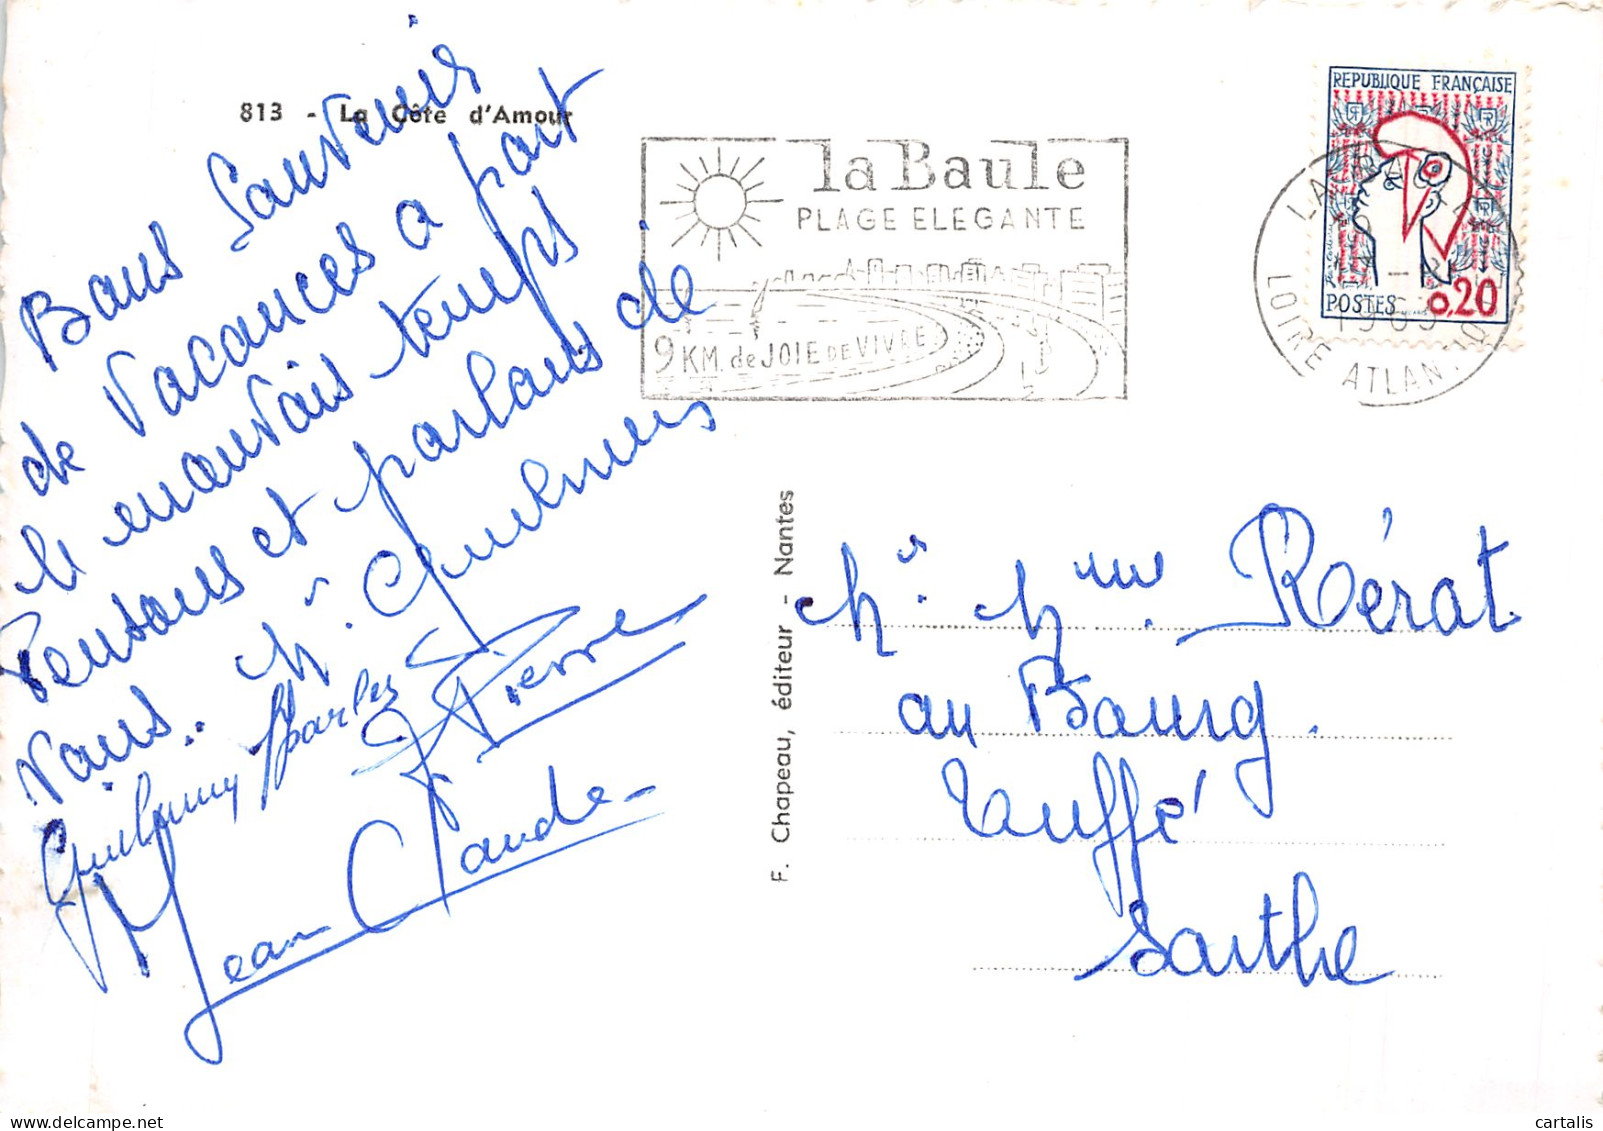 813 - La Côte d'Amour
Bons Souvenirs
de Vacances a part
le mauvais temps
Pensons et parlons de
vous..
Pierre
Jean Claude
la Baule
PLAGE ELEGANTE
9 KM. de JOIE DE VIVRE
REPUBLIQUE FRANÇAISE
POSTES 0,20
LOIRE ATLANTIQUE
F. Chapeau, éditeur - Nantes
Mr. Mme Rérat
au Bourg.
Tuffé
Sarthe
cartalis